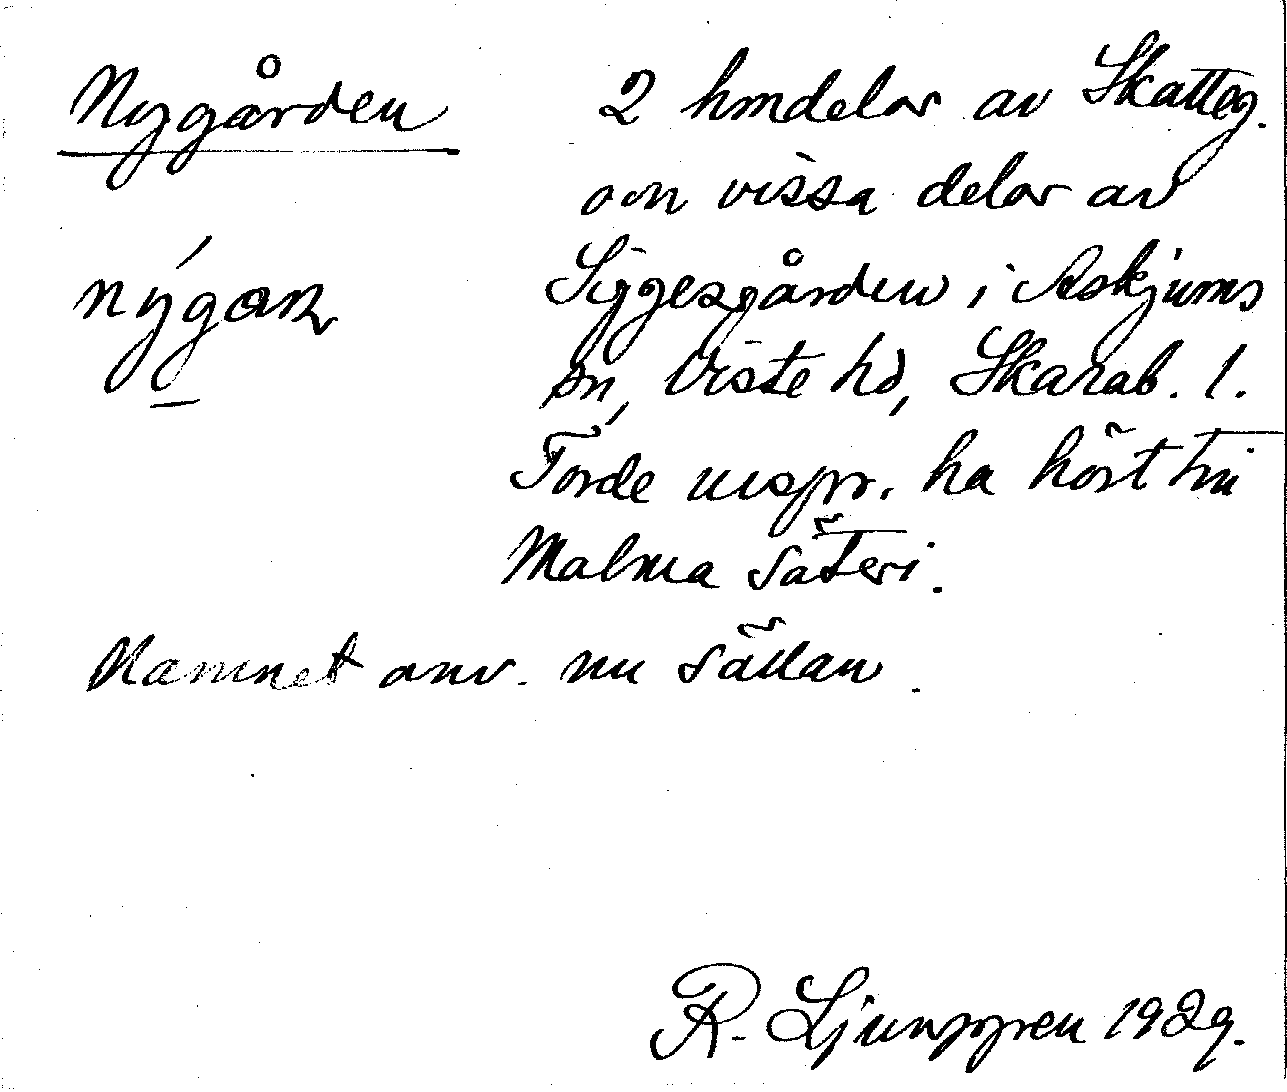 Nygården
nýgaꞃ
2 hmdelar av Skatteg.
och vissa delar av
Siggesgården i Askjums
sn, Viste hd, Skarab. l.
Torde urspr. ha hört till
Malma säteri.
Namnet anv. nu sällan.
R. Ljunggren 1929.